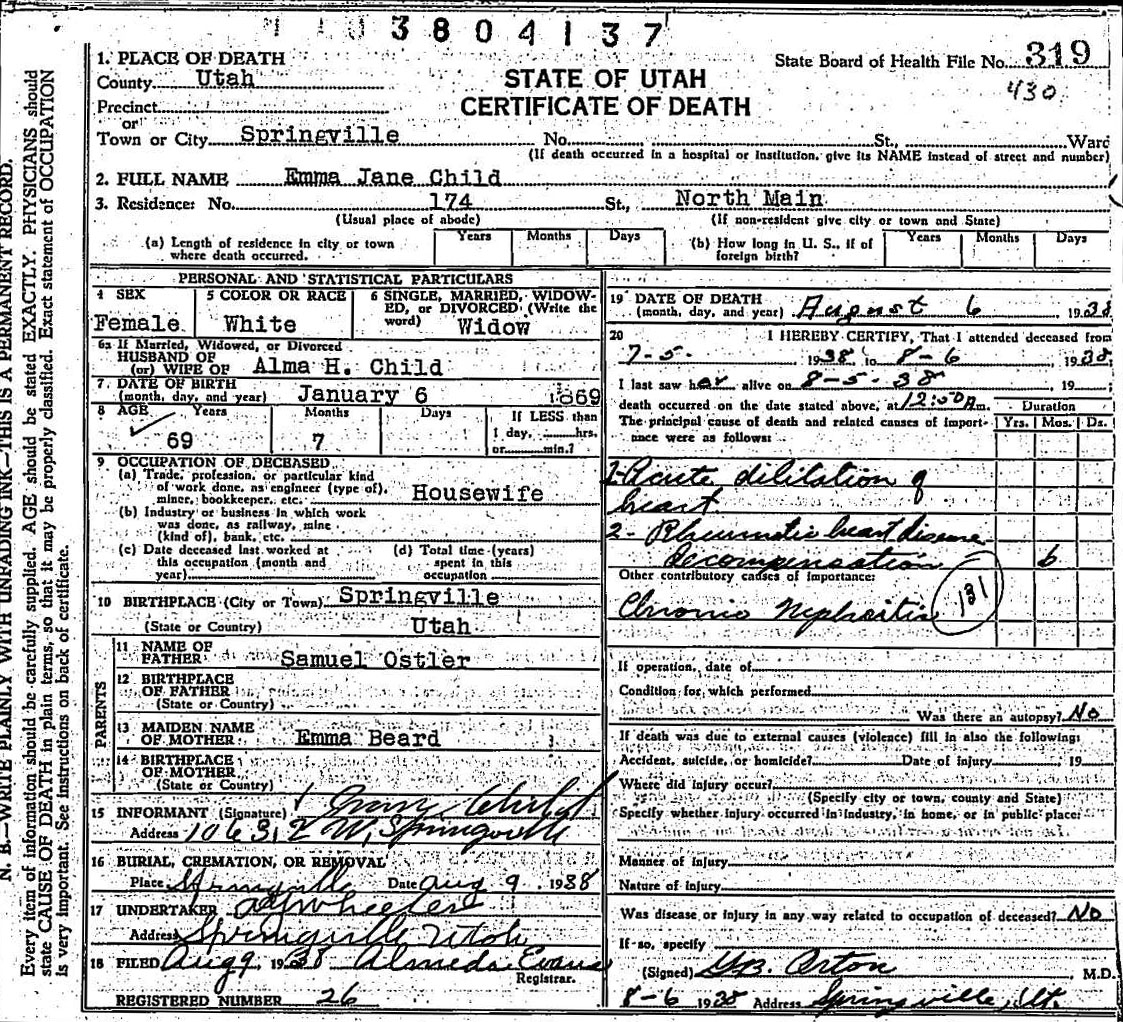 3804137
1. PLACE OF DEATH
County Utah
State Board of Health File No. 319
430
STATE OF UTAH
CERTIFICATE OF DEATH
Precinct
or
Town or City Springville No. St., Ward
(If death occurred in a hospital or institution, give its NAME instead of street and number)
2. FULL NAME Emma Jane Child
3. Residence: No. 174 St., North Main
(Usual place of abode) (If non-resident give city or town and State)
(a) Length of residence in city or town where death occurred. Years Months Days
(b) How long in U. S., if of foreign birth? Years Months Days
PERSONAL AND STATISTICAL PARTICULARS
4 SEX
Female
5 COLOR OR RACE
White
6 SINGLE, MARRIED, WIDOW-
ED, or DIVORCED (Write the
word) Widow
6a If Married, Widowed, or Divorced
HUSBAND OF
(or) WIFE OF Alma H. Child
7 DATE OF BIRTH
(month, day, and year) January 6 1869
8 AGE Years Months Days If LESS than
69 7 1 day, hrs.
or min.?
9 OCCUPATION OF DECEASED
(a) Trade, profession, or particular kind
of work done, as engineer (type of),
miner, bookkeeper, etc. Housewife
(b) Industry or business in which work
was done, as railway, mine
(kind of), bank, etc.
(c) Date deceased last worked at
this occupation (month and
year)
(d) Total time (years)
spent in this
occupation
10 BIRTHPLACE (City or Town) Springville
(State or Country) Utah
PARENTS
11 NAME OF
FATHER Samuel Ostler
12 BIRTHPLACE
OF FATHER
(State or Country)
13 MAIDEN NAME
OF MOTHER Emma Beard
14 BIRTHPLACE
OF MOTHER
(State or Country)
15 INFORMANT (Signature) Child
Address 1063, 2 W, Springville
16 BURIAL, CREMATION, OR REMOVAL
Place Springville Date Aug 9, 1938
17 UNDERTAKER Wheeler
Address Springville Utah
18 FILED Aug 9, 1938 Almeda Evans
Registrar.
REGISTERED NUMBER 26
19 DATE OF DEATH
(month, day, and year) August 6 1938
20 I HEREBY CERTIFY, That I attended deceased from
7-5- 1938 to 8-6 1938
I last saw her alive on 8-5-38, 19
death occurred on the date stated above, at 12:50 A m. Duration
The principal cause of death and related causes of import-
ance were as follows: Yrs. Mos. Ds.
1-Acute dilitation of
heart.
2- Rheumatic heart disease
decompensation 6
Other contributory causes of importance:
Chronic Nephritis 131
If operation, date of
Condition for which performed
Was there an autopsy? No
If death was due to external causes (violence) fill in also the following:
Accident, suicide, or homicide? Date of injury 19
Where did injury occur?
(Specify city or town, county and State)
Specify whether injury occurred in industry, in home, or in public place:
Manner of injury
Nature of injury
Was disease or injury in any way related to occupation of deceased? No
If so, specify
(Signed) Orton M.D.
8-6 1938 Address Springville, Ut.
N. B.—WRITE PLAINLY WITH UNFADING INK—THIS IS A PERMANENT RECORD.
Every item of information should be carefully supplied. AGE should be stated EXACTLY. PHYSICIANS should
state CAUSE OF DEATH in plain terms, so that it may be properly classified. Exact statement of OCCUPATION
is very important. See instructions on back of certificate.